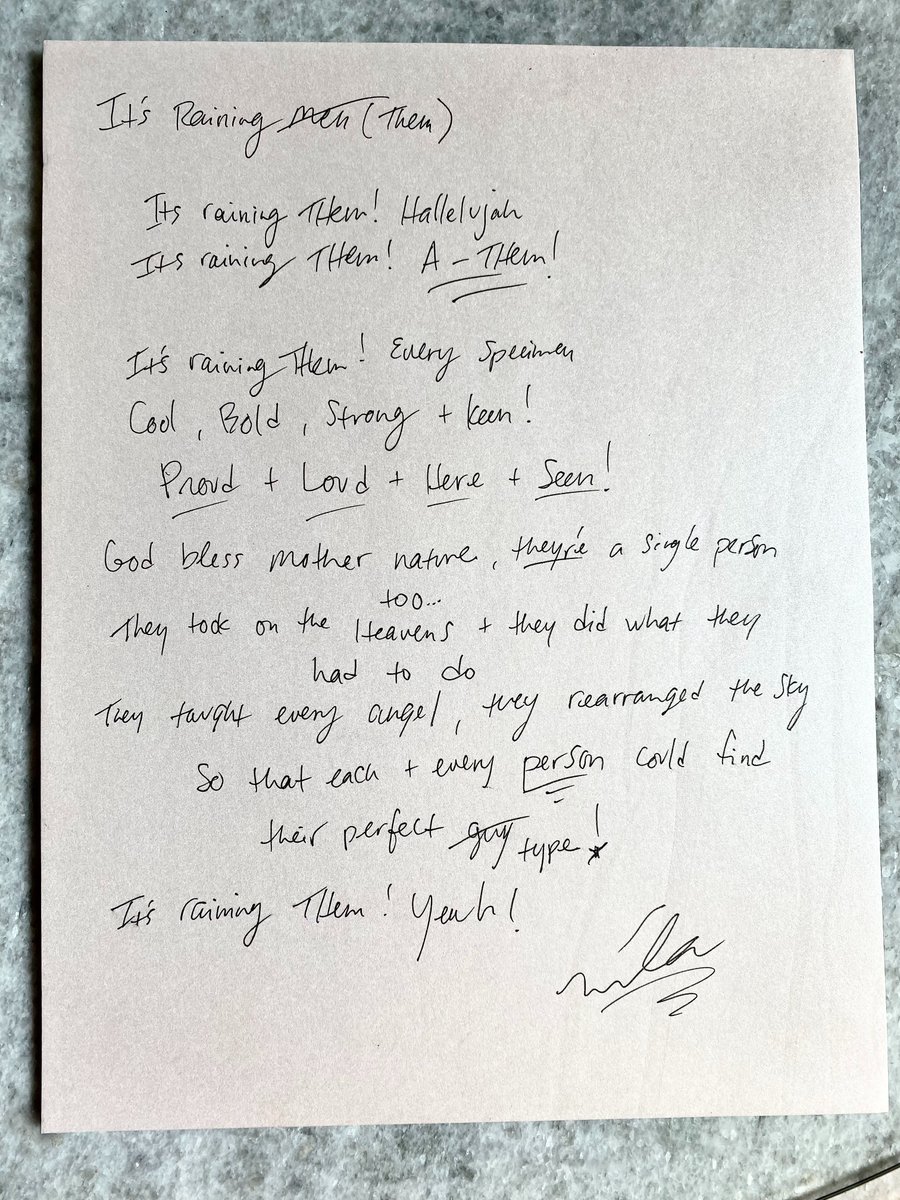 It's Raining men (Them)
Its raining THem! Hallelujah
Its raining THem! A-THem!
It's raining THem! Every Specimen
Cool, Bold, Strong + keen!
Proud + Loud + Here + Seen!
God bless mother nature, they're a single person
too...
They took on the Heavens + they did what they
had to do
They taught every angel, they rearranged the Sky
So that each + every person could find
their perfect guy type!
It's raining THem! Yeah!